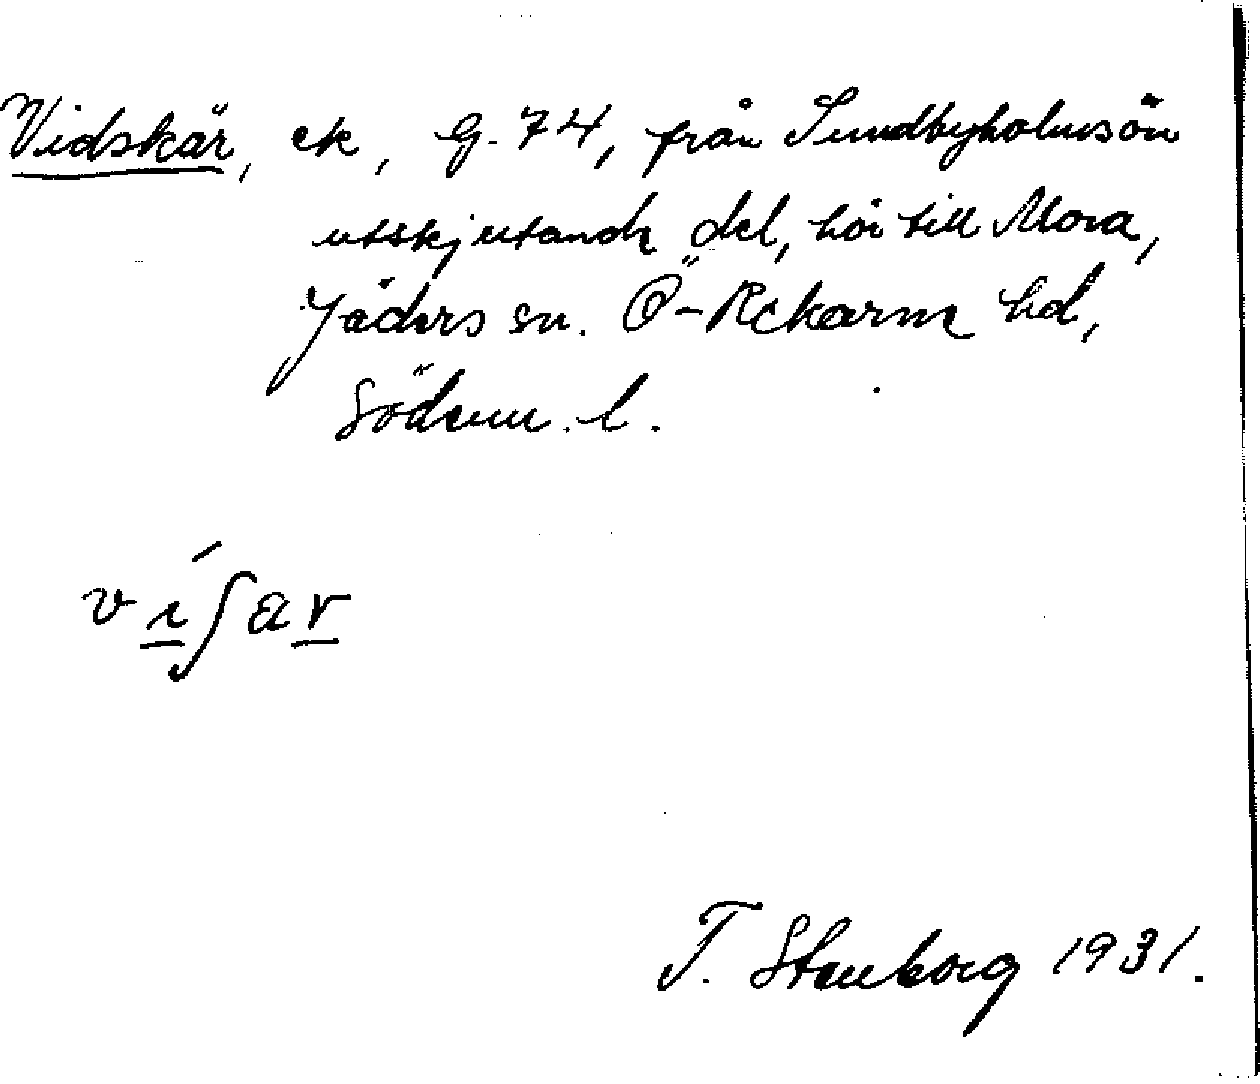 Vidskär, ek, G. 74, från Sundbyholmsön
utskjutande del, hör till Mora,
Jäders sn. Ö-Rekarne hd,
Söderm. l.
víʃar
T. Stenborg 1931.